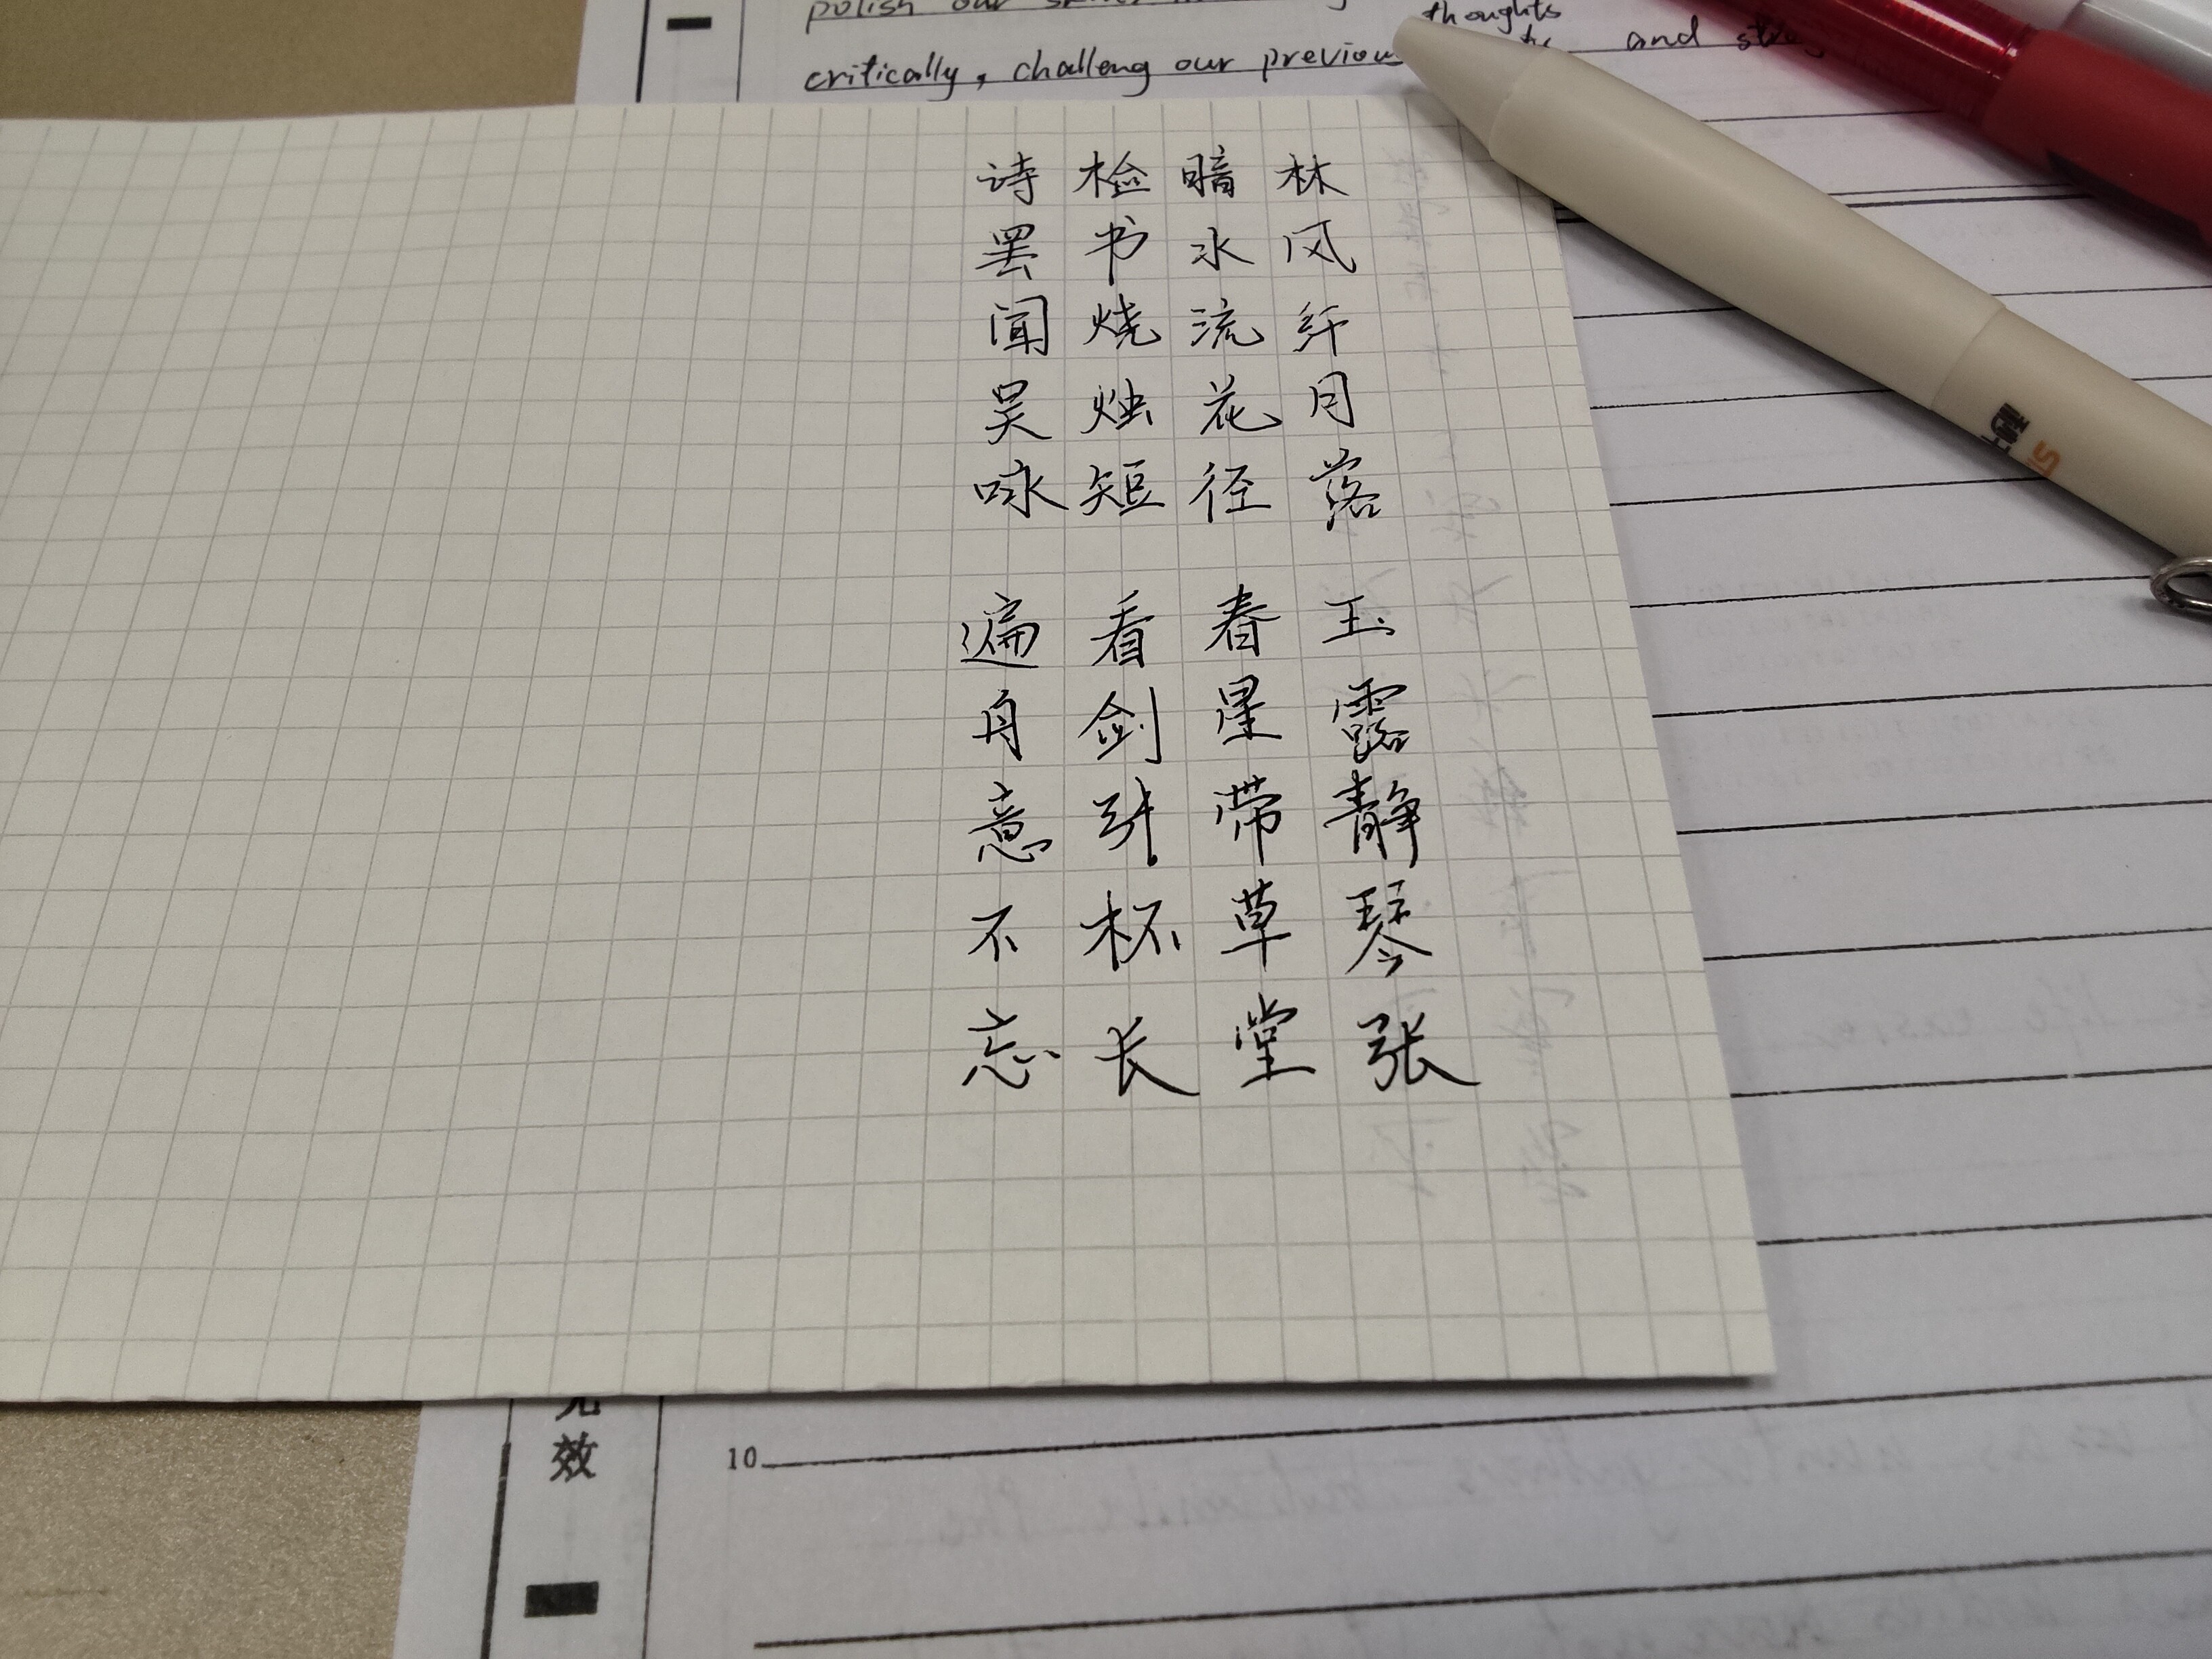 polish our
thoughts
critically, challeng our previous and
林风纤月落
玉露静琴张
暗水流花径
春星带草堂
检书烧烛短
看剑引杯长
诗罢闻吴咏
遍舟意不忘
效
10